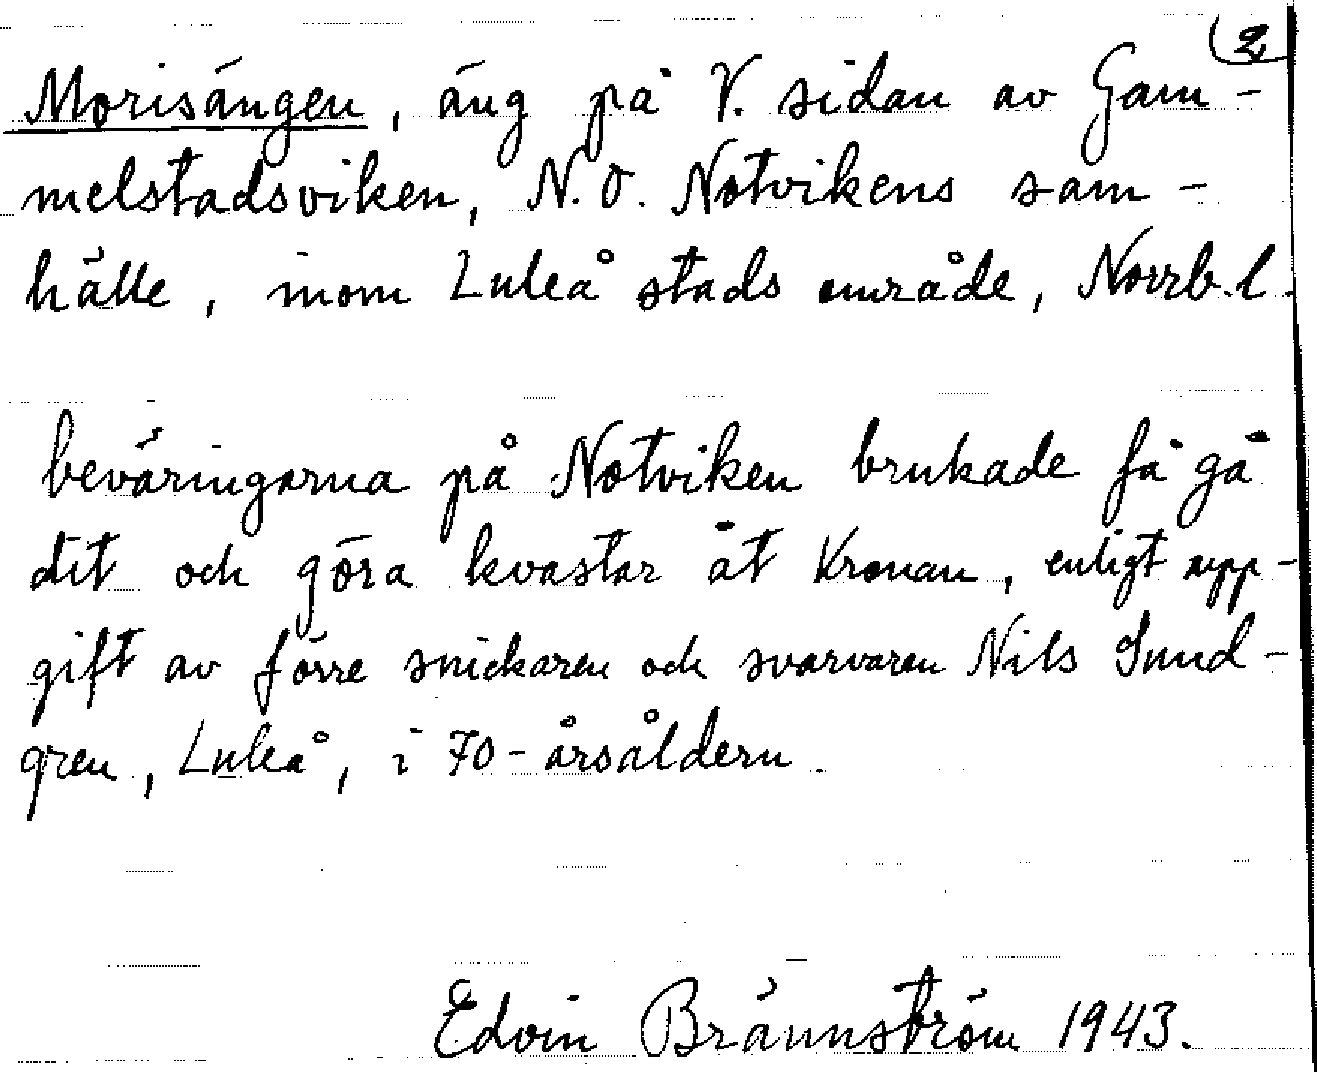 2
Morisängen, äng på V. sidan av Gam-
melstadsviken, N.O. Notvikens sam-
hälle, inom Luleå stads område, Norrb.l.
beväringarna på Notviken brukade få gå
dit och göra kvastar åt Kronan, enligt upp-
gift av förre snickaren och svarvaren Nils Sund-
gren, Luleå, i 70-årsåldern.
Edvin Brännström 1943.